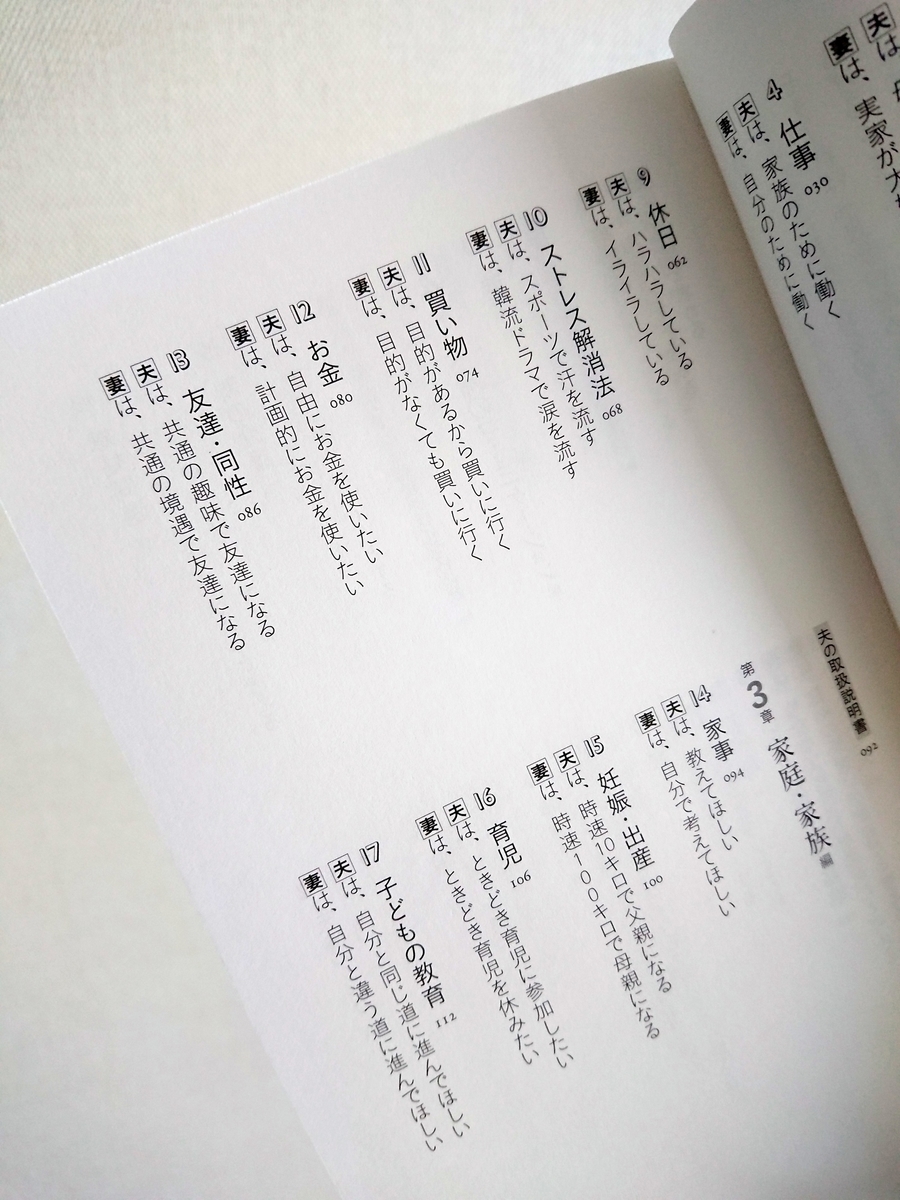 夫は、
妻は、実家が
4 仕事 030
夫は、家族のために働く
妻は、自分のために働く
9 休日 062
夫は、ハラハラしている
妻は、イライラしている
10 ストレス解消法 068
夫は、スポーツで汗を流す
妻は、韓流ドラマで涙を流す
11 買い物 074
夫は、目的があるから買いに行く
妻は、目的がなくても買いに行く
12 お金 080
夫は、自由にお金を使いたい
妻は、計画的にお金を使いたい
13 友達・同性 086
夫は、共通の趣味で友達になる
妻は、共通の境遇で友達になる
夫の取扱説明書 092
第3章 家庭・家族編
14 家事 094
夫は、教えてほしい
妻は、自分で考えてほしい
15 妊娠・出産 100
夫は、時速10キロで父親になる
妻は、時速100キロで母親になる
16 育児 106
夫は、ときどき育児に参加したい
妻は、ときどき育児を休みたい
17 子どもの教育 112
夫は、自分と同じ道に進んでほしい
妻は、自分と違う道に進んでほしい